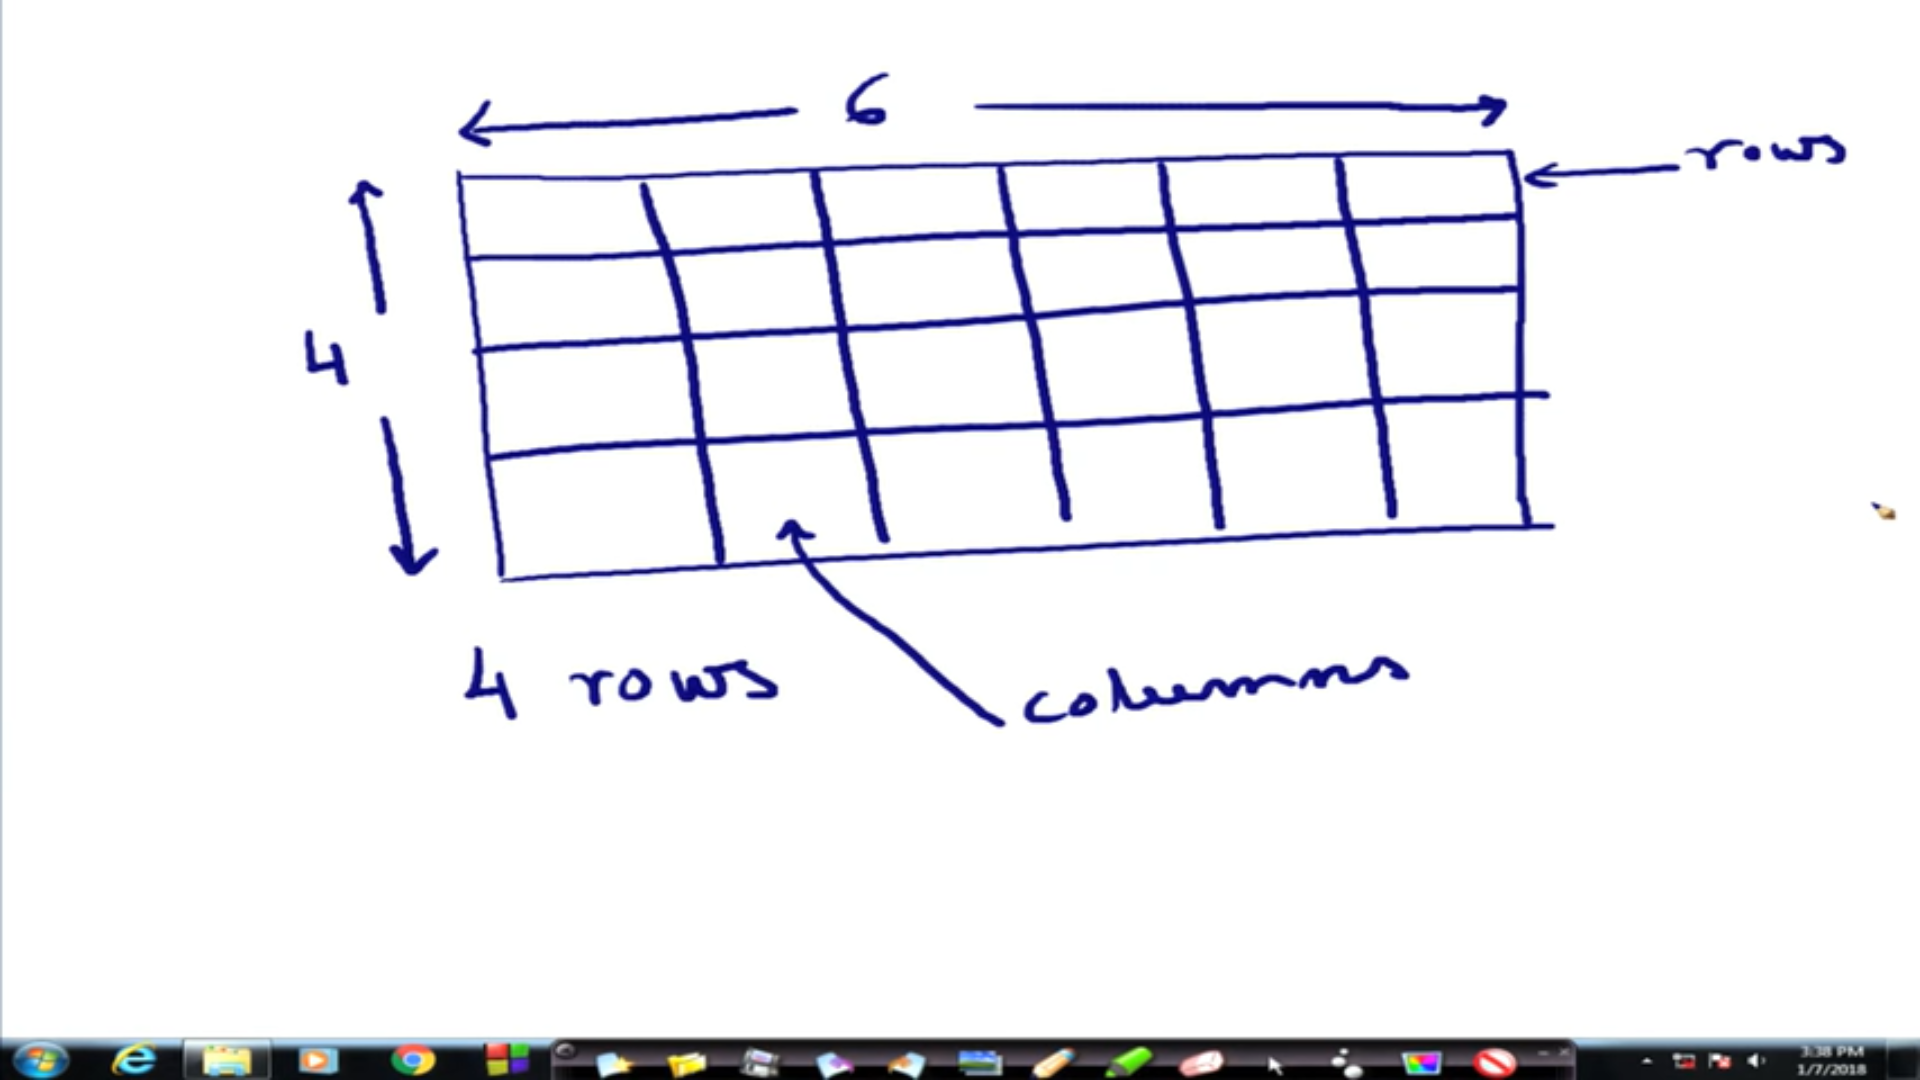 6
rows
4
4 rows
columns
3:38 PM
1/7/2018